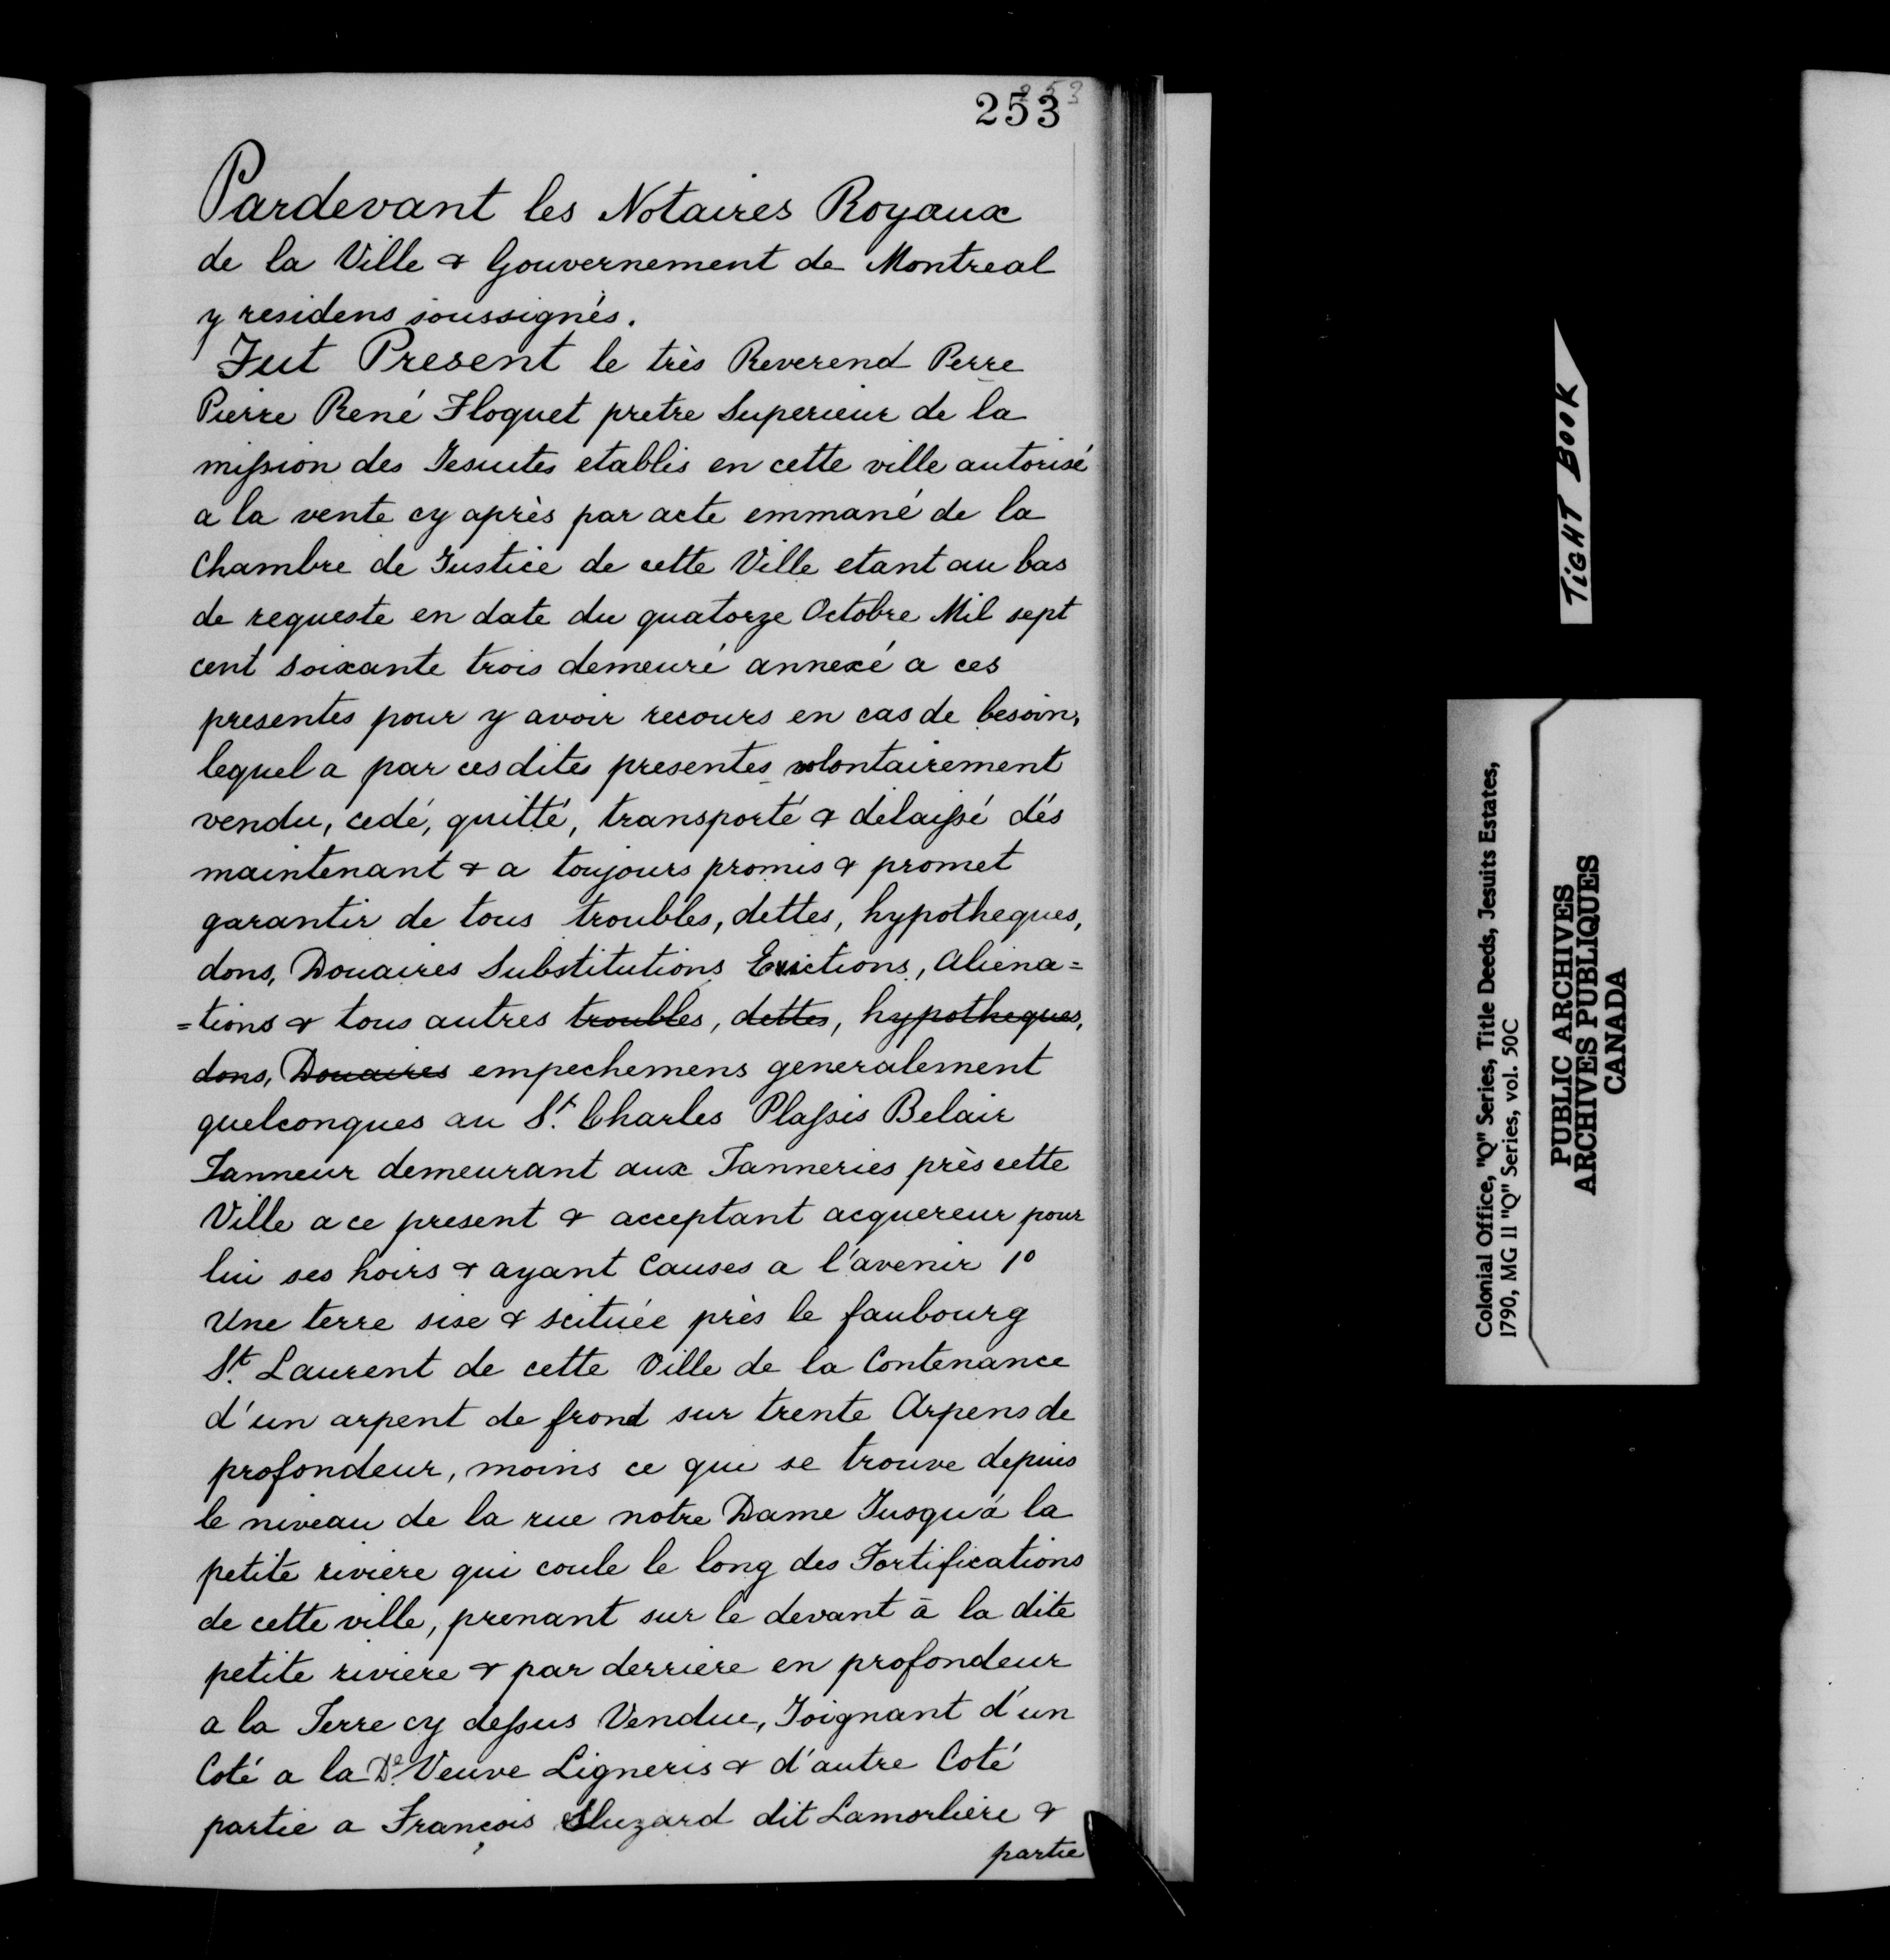 253
253
Pardevant les Notaires Royaux
de la Ville & Gouvernement de Montreal
y residens soussignés.
Fut Present le très Reverend Perre
Pierre René Floquet pretre Superieur de la
mission des Jesuites etablis en cette ville autorisé
a la vente cy après par acte emmané de la
Chambre de Justice de cette Ville etant au bas
de requeste en date du quatorze Octobre Mil sept
cent soixante trois demeuré annexé a ces
presentes pour y avoir recours en cas de besoin,
lequel a par ces dites presentes volontairement
vendu, cedé, quitté, transporté & délaissé dés
maintenant & a toujours promis & promet
garantir de tous troubles, dettes, hypotheques,
dons, Douaires Substitutions Evictions, aliena=
=tions & tous autres troubles, dettes, hypotheques,
dons, Douaires empechemens generalement
quelconques au Sr. Charles Plassis Belair
Tanneur demeurant aux Tanneries près cette
Ville a ce present & acceptant acquereur pour
lui ses hoirs & ayant Causes a l'avenir 1o
Une terre sise & scituée près le faubourg
St. Laurent de cette Ville de la Contenance
d'un arpent de frond sur trente Arpens de
profondeur, moins ce qui se trouve depuis
le niveau de la rue notre Dame Jusqu'à la
petite riviere qui coule le long des Fortifications
de cette ville, prenant sur le devant à la dite
petite riviere & par derriere en profondeur
a la Terre cy dessus Vendue, Joignant d'un
Coté a la De. Veuve Ligneris & d'autre Coté
partie a François dit Lamorlière &
partie
TIGHT BOOK
Colonial Office, "Q" Series, Title Deeds, Jesuits Estates,
1790, MG 11 "Q" Series, vol. 50C
PUBLIC ARCHIVES
ARCHIVES PUBLIQUES
CANADA